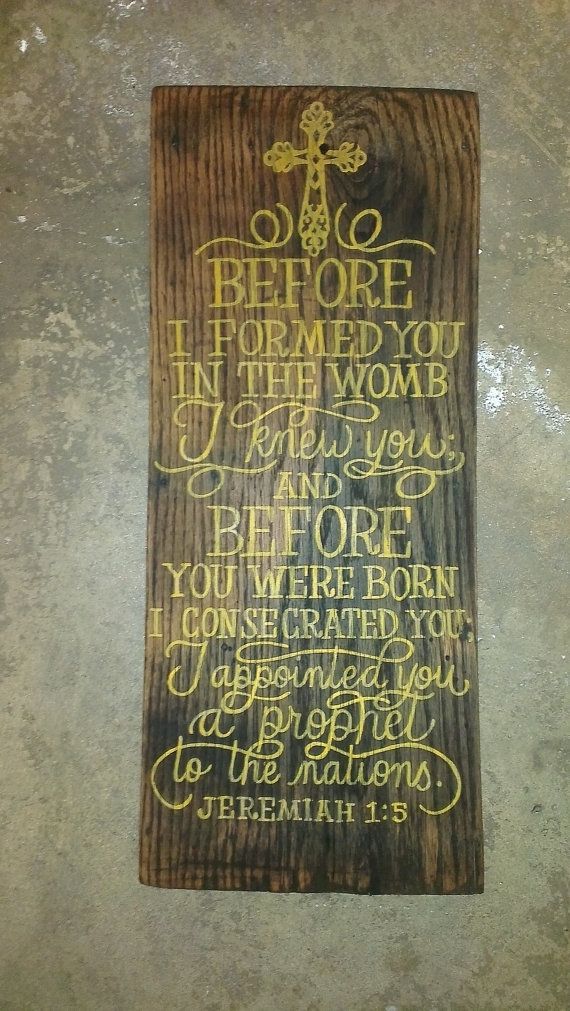 BEFORE
I FORMED YOU
IN THE WOMB
I knew you;
AND
BEFORE
YOU WERE BORN
I CONSECRATED YOU
I appointed you
a prophet
to the nations.
JEREMIAH 1:5